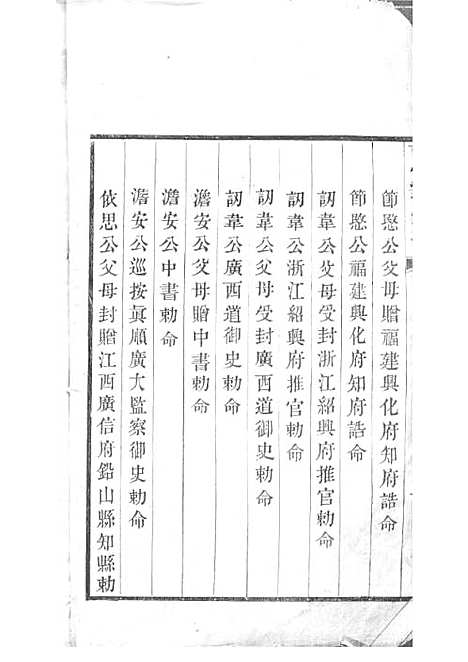 節愍公父母贈福建興化府知府誥命
節愍公福建興化府知府誥命
訒葦公父母受封浙江紹興府推官勅命
訒葦公浙江紹興府推官勅命
訒葦公父母受封廣西道御史勅命
訒葦公廣西道御史勅命
澹安公父母贈中書勅命
澹安公中書勅命
澹安公巡按眞順廣大監察御史勅命
依思公父母封贈江西廣信府鉛山縣知縣勅